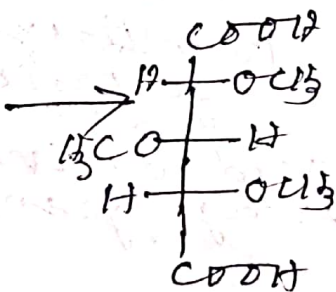 COOH
H OCH3
H3C O H
H OCH3
COOH